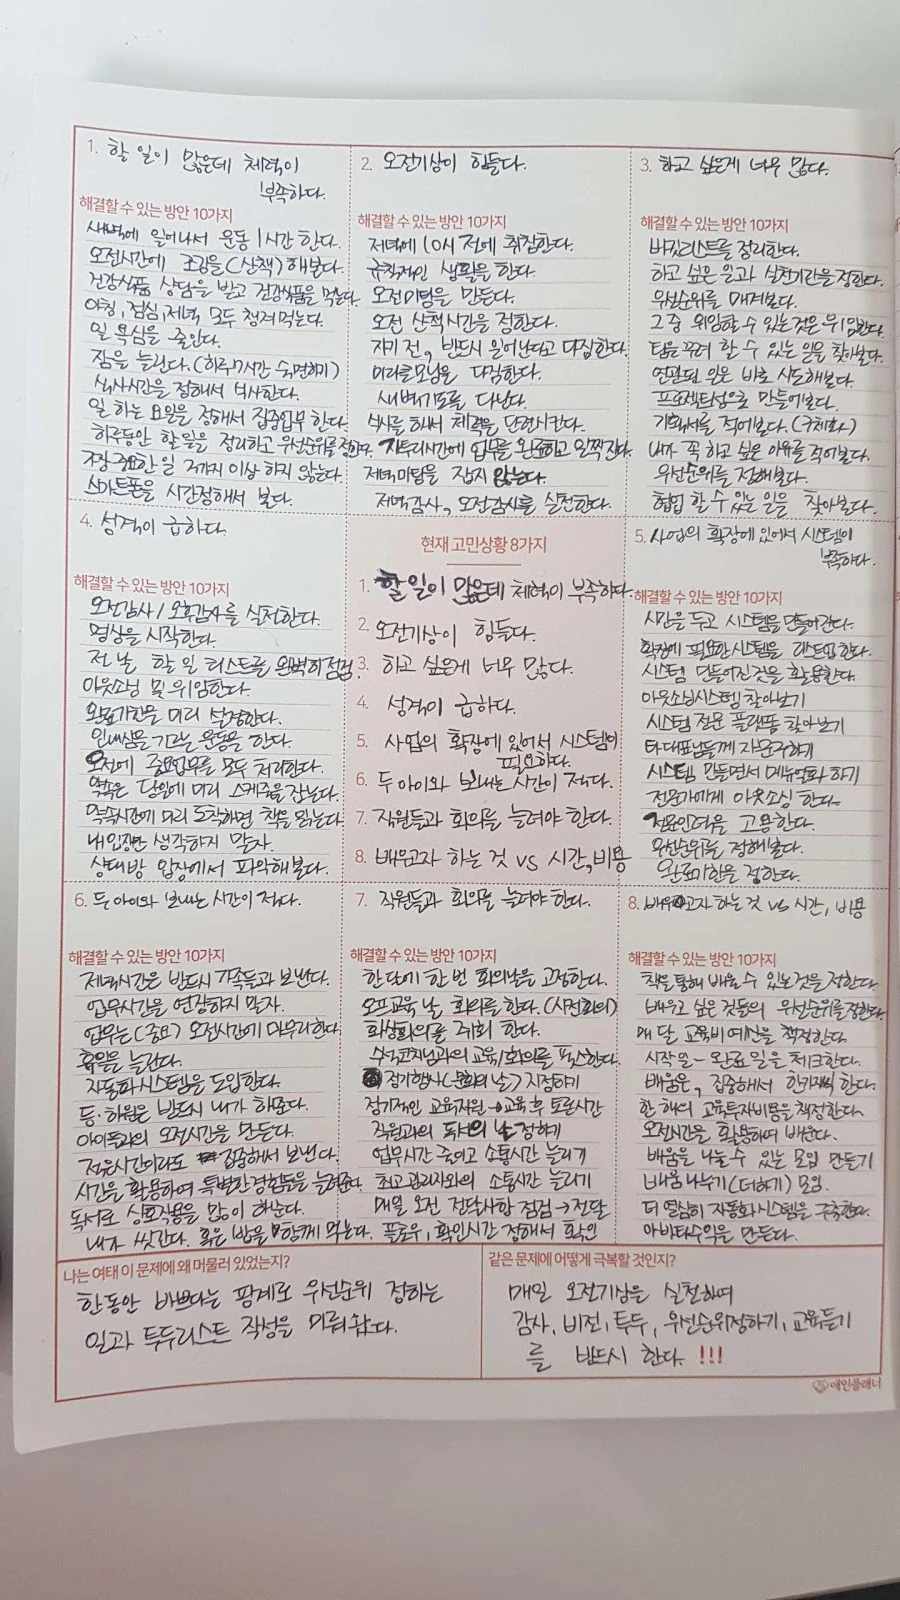 1. 할 일이 많은데 체력이
부족하다.
해결할 수 있는 방안 10가지
새벽에 일어나서 운동 1시간 한다.
오전시간에 조깅을(산책) 해본다.
건강식품 상담을 받고 건강식품을 먹는다.
아침, 점심, 저녁 모두 챙겨 먹는다.
일 욕심을 줄인다.
잠을 늘린다.(하루 7시간 숙면하기)
식사시간을 정해서 식사한다.
일 하는 요일을 정해서 집중업무 한다.
하루동안 할일을 정리하고 우선순위를 정한다.
가장 중요한 일 2가지 이상 하지 않는다.
스마트폰을 시간정해서 본다.
2. 오전기상이 힘들다.
해결할 수 있는 방안 10가지
저녁에 10시 전에 취침한다.
규칙적인 생활을 한다.
오전미팅을 만든다.
오전 산책시간을 정한다.
자기 전, 반드시 일어난다고 다짐한다.
미라클모닝을 다짐한다.
새벽기도를 다닌다.
식사를 해서 체력을 단련시킨다.
자투리시간에 업무를 완료하고 일찍 잔다.
저녁미팅을 잡지 않는다.
저녁감사, 오전감사를 실천한다.
3. 하고 싶은게 너무 많다.
해결할 수 있는 방안 10가지
버킷리스트를 정리한다.
하고 싶은 일과 실천기간을 정한다.
우선순위를 매겨본다.
그 중 위임할 수 있는 것은 위임한다.
팀을 꾸려 할 수 있는 일을 찾아본다.
연관된 일은 바로 시도해본다.
프로젝트성으로 만들어본다.
기획서를 적어본다.(구체화)
내가 꼭 하고 싶은 이유를 적어본다.
우선순위를 정해본다.
협업 할 수 있는 일을 찾아본다.
4. 성격이 급하다.
해결할 수 있는 방안 10가지
오전감사 / 오후감사를 실천한다.
명상을 시작한다.
전 날 할 일 리스트를 완벽히 점검.
아웃소싱 및 위임한다.
완료기한을 미리 설정한다.
인내심을 기르는 운동을 한다.
오전에 중요업무를 모두 처리한다.
약속은 당일에 미리 스케줄을 잡는다.
약속시간에 미리 도착하면 책을 읽는다
내 입장만 생각하지 말자.
상대방 입장에서 파악해본다.
현재 고민상황 8가지
1. 할 일이 많은데 체력이 부족하다.
2. 오전기상이 힘들다.
3. 하고 싶은게 너무 많다.
4. 성격이 급하다.
5. 사업의 확장에 있어서 시스템이
필요하다.
6. 두 아이와 보내는 시간이 적다.
7. 직원들과 회의를 늘려야 한다.
8. 배우고자 하는 것 vs 시간, 비용
5. 사업의 확장에 있어서 시스템이
부족하다.
해결할 수 있는 방안 10가지
시간을 두고 시스템을 만들어간다.
확장에 필요한 시스템을 리스트업 한다.
시스템 만들어진것을 활용한다.
아웃소싱시스템 찾아보기
시스템 전문 플랫폼 찾아보기
타대표님들께 자문구하기
시스템 만들면서 매뉴얼화 하기
전문가에게 아웃소싱 한다.
전문인력을 고용한다.
우선순위를 정해본다.
완료기한을 정한다.
6. 두 아이와 보내는 시간이 적다.
해결할 수 있는 방안 10가지
저녁시간은 반드시 가족들과 보낸다.
업무시간을 연장하지 말자.
업무는(중요) 오전시간에 마무리한다
휴일을 늘린다.
자동화시스템을 도입한다.
등·하원은 반드시 내가 해준다.
아이들과의 오전시간을 만든다.
적은시간이라도 집중해서 보낸다.
시간을 활용하여 특별한경험들을 늘려준다.
독서로 상호작용을 많이 하는다.
내가 씻긴다. 혹은 밥을 함께 먹는다.
7. 직원들과 회의를 늘려야 한다.
해결할 수 있는 방안 10가지
한 달에 한 번 회의날을 고정한다.
오프교육 날 회의를 한다.(사전회의)
화상회의를 계획 한다.
수석코치님과의 교육/회의를 픽스한다.
정기행사(문화의 날) 지정하기
정기적인 교육지원 → 교육 후 토론시간
직원과의 독서의 날 정하기
업무시간 줄이고 소통시간 늘리기
최고관리자와의 소통시간 늘리기
매일 오전 전달사항 점검 → 전달
플로우, 확인시간 정해서 확인
8. 배우고자 하는 것 vs 시간, 비용
해결할 수 있는 방안 10가지
책을 통해 배울 수 있는 것을 정한다.
배우고 싶은 것들의 우선순위를 정한다.
매 달 교육비 예산을 책정한다.
시작일 - 완료일을 체크한다.
배움은, 집중해서 한가지씩 한다.
한 해의 교육투자비용을 책정한다.
오전시간을 활용하여 배운다.
배움을 나눌 수 있는 모임 만들기
배움 나누기(더하기) 모임.
더 열심히 자동화시스템을 구축한다.
아바타수익을 만든다.
나는 여태 이 문제에 왜 머물러 있었는지?
한동안 바쁘다는 핑계로 우선순위 정하는
일과 투두리스트 작성을 미뤄왔다.
같은 문제에 어떻게 극복할 것인지?
매일 오전기상을 실천하여
감사, 비전, 투두, 우선순위정하기, 교육듣기
를 반드시 한다. !!!
애인플래너